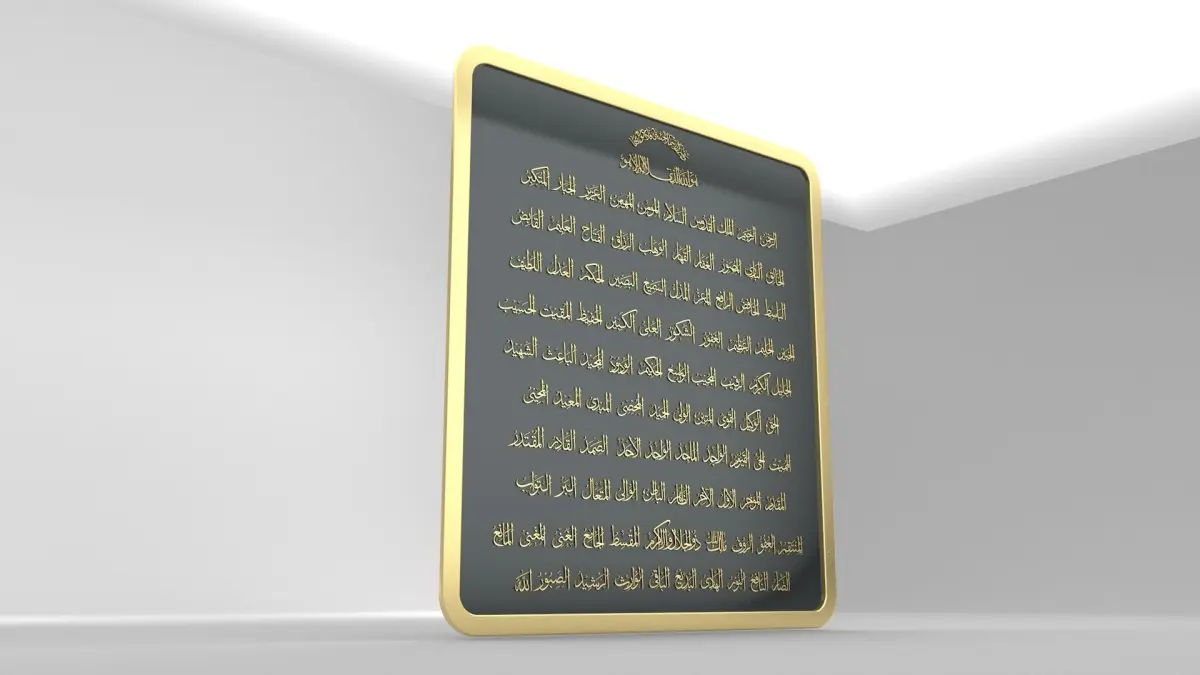 هو الله الذي لا اله الا هو
الرحمن الرحيم الملك القدوس السلام المؤمن المهيمن العزيز الجبار المتكبر
الخالق الباري المصور الغفار القهار الوهاب الرزاق الفتاح العليم القابض
الباسط الخافض الرافع المعز المذل السميع البصير الحكم العدل اللطيف
الخبير الحليم العظيم الغفور الشكور العلى الكبير الحفيظ المقيت الحسيب
الجليل الكريم الرقيب المجيب الواسع الحكيم الودود المجيد الباعث الشهيد
الحق الوكيل القوى المتين الولى الحميد المحصى المبدى المعيد المحيى
المميت الحى القيوم الواجد الماجد الواحد الاحد الصمد القادر المقتدر
المقدم الموخر الاول الاخر الظاهر الباطن الوالى المتعال البر التواب
المنتقم العفو الروف مالك الملك ذوالجلال والاكرام المقسط الجامع الغنى المغنى المانع
الضار النافع النور الهادى البديع الباقى الوارث الرشيد الصبور الله